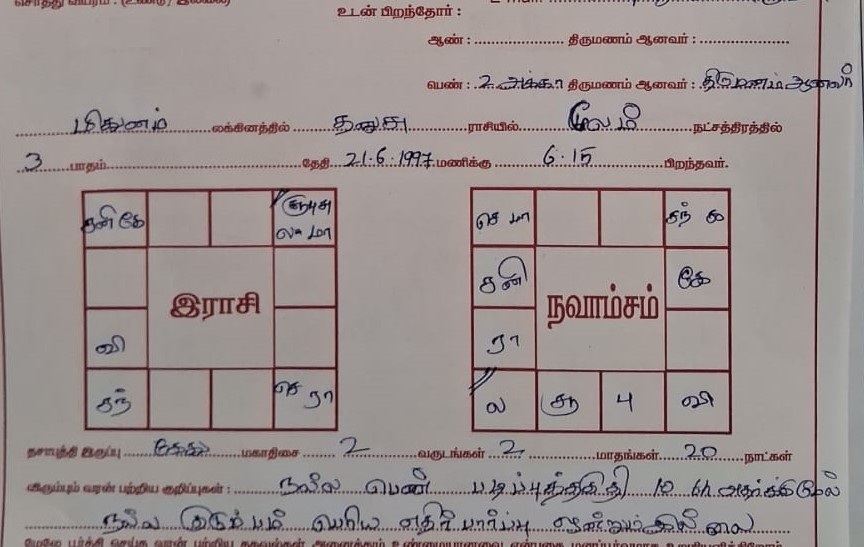 உடன் பிறந்தோர் :
ஆண் : .................... திருமணம் ஆனவர் : ....................
பெண் : 2 அக்கா திருமணம் ஆனவர் : திருமணம் ஆனவர்
மிதுனம் லக்கினத்தில் தனுசு ராசியில் மூலம் நட்சத்திரத்தில்
3 பாதம் தேதி 21-6-1997 மணிக்கு 6.15 பிறந்தவர்.
சனி கே சூ பு சு
ல மா
செ மா சுந் சு
சனி கே
இராசி நவாம்சம்
வி ரா
சந் செ ரா ல சூ பு வி
தசாபுத்தி இருப்பு கேது மகாதிசை 2 வருடங்கள் 2 மாதங்கள் 20 நாட்கள்
விரும்பும் வரன் பற்றிய குறிப்புகள் : நல்ல பெண் படிப்புத்தகுதி 10 th அதற்க்குமேல்
நல்ல குடும்பம் பெரிய எதிர்பார்ப்பு இல்லை